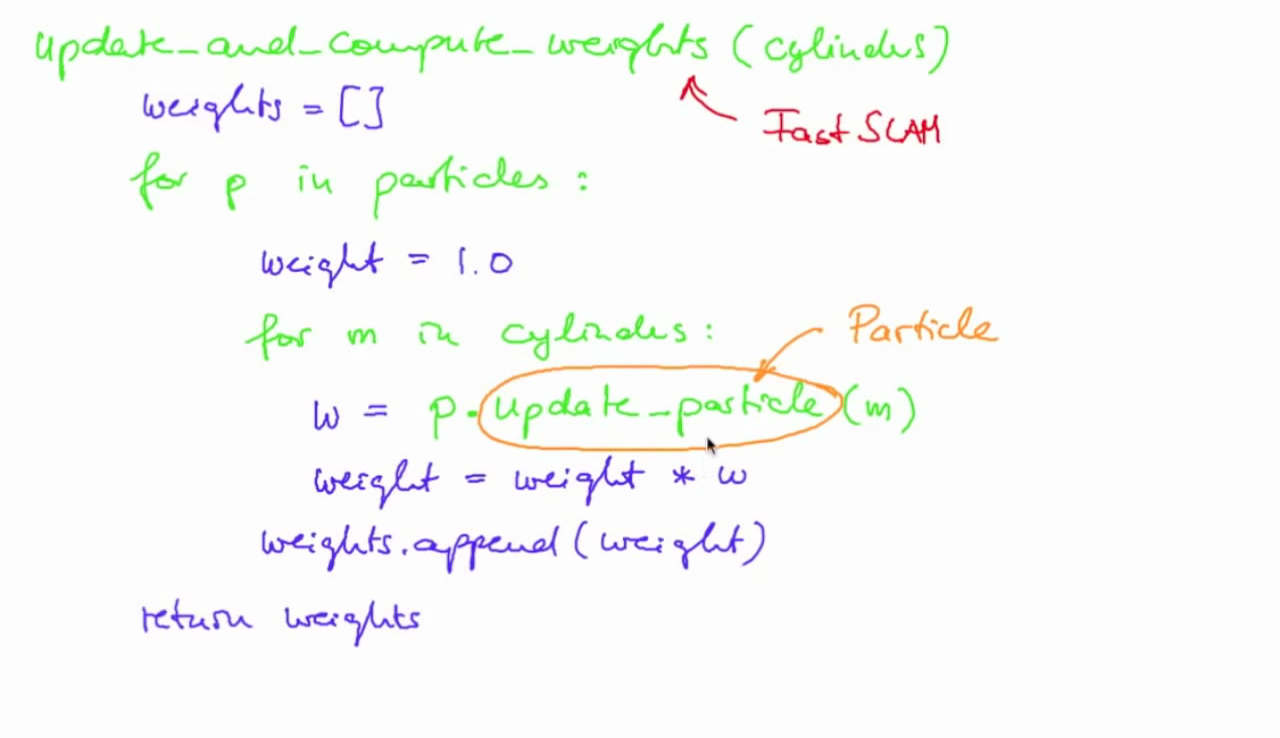 update_and_compute_weights (cylinders)
weights = []
FastSLAM
for p in particles :
weight = 1.0
for m in cylinders :
Particle
w = p.update_particle (m)
weight = weight * w
weights.append (weight)
return weights